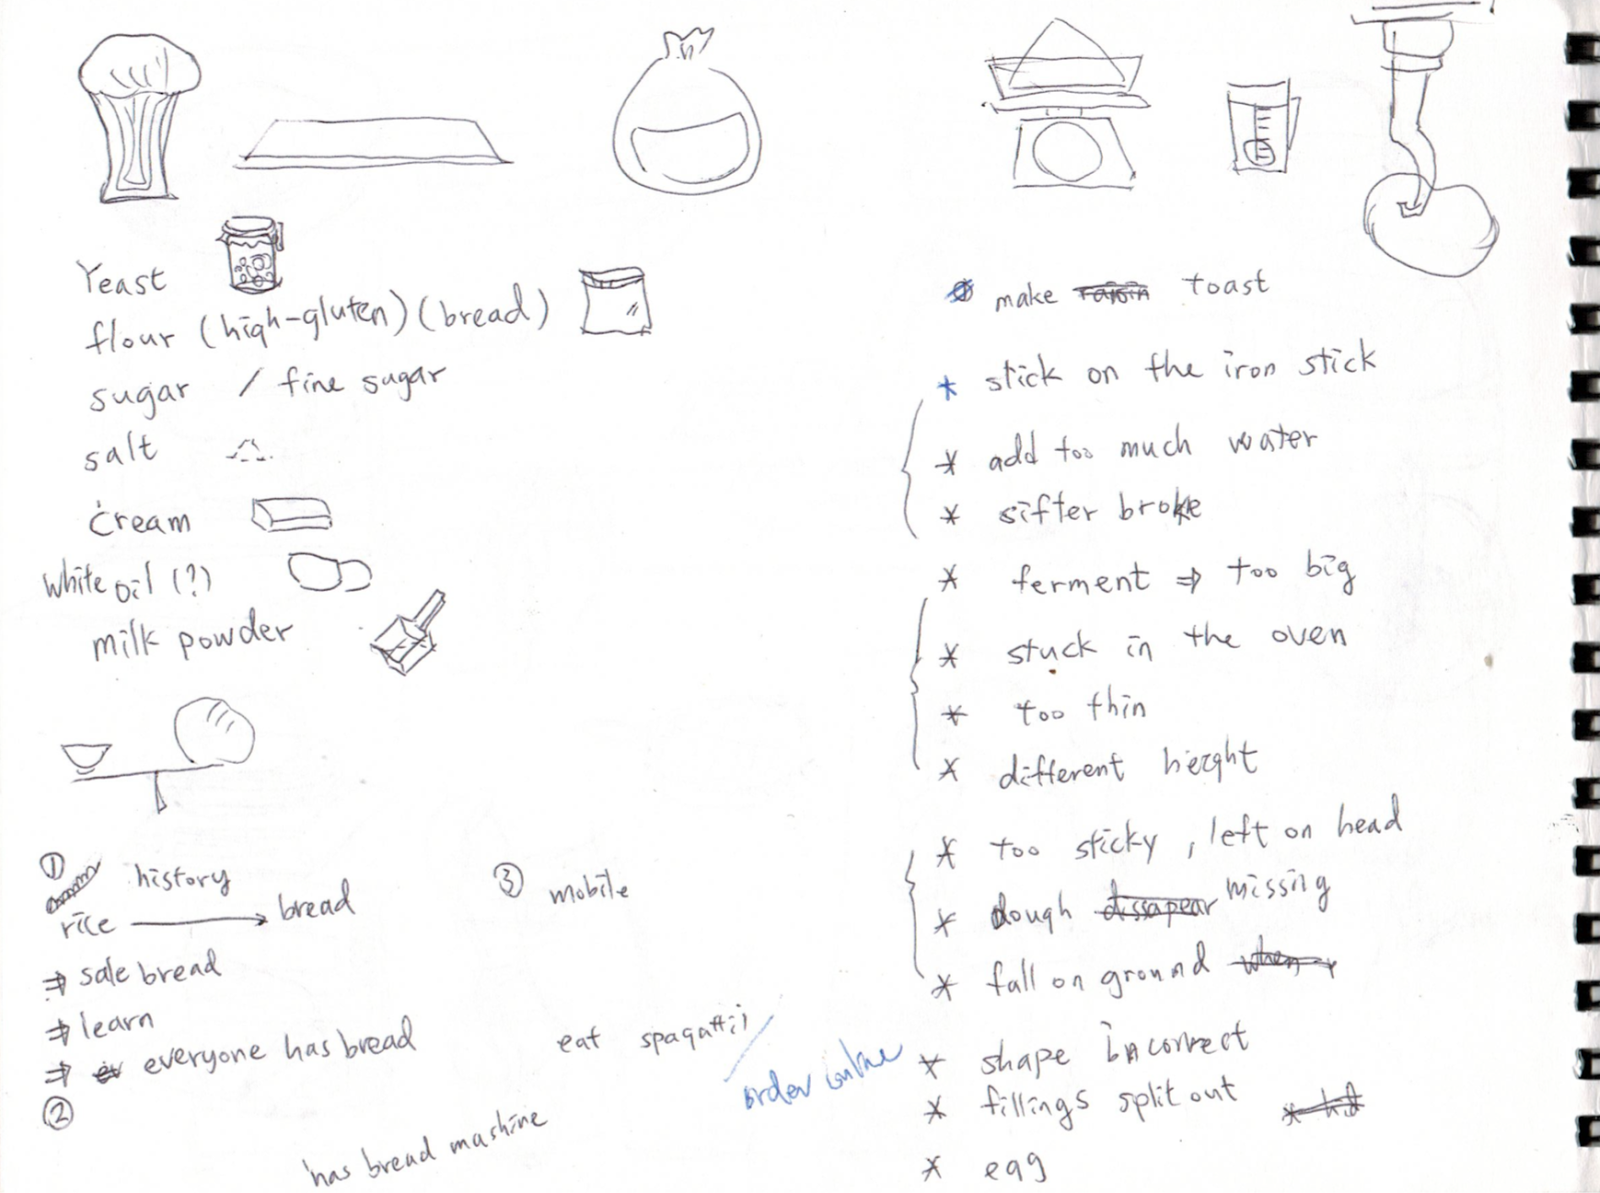 Yeast
flour (high-gluten) (bread)
sugar / fine sugar
salt
cream
white oil (?)
milk powder
① history
rice → bread
⇒ sale bread
⇒ learn
⇒ everyone has bread
②
has bread mashine
③ mobile
eat spagattii
order online
make raisin toast
* stick on the iron stick
* add too much water
* sifter broke
* ferment ⇒ too big
* stuck in the oven
* too thin
* different height
* too sticky, left on head
* dough dissapear missing
* fall on ground when
* shape incorrect
* fillings split out
* egg